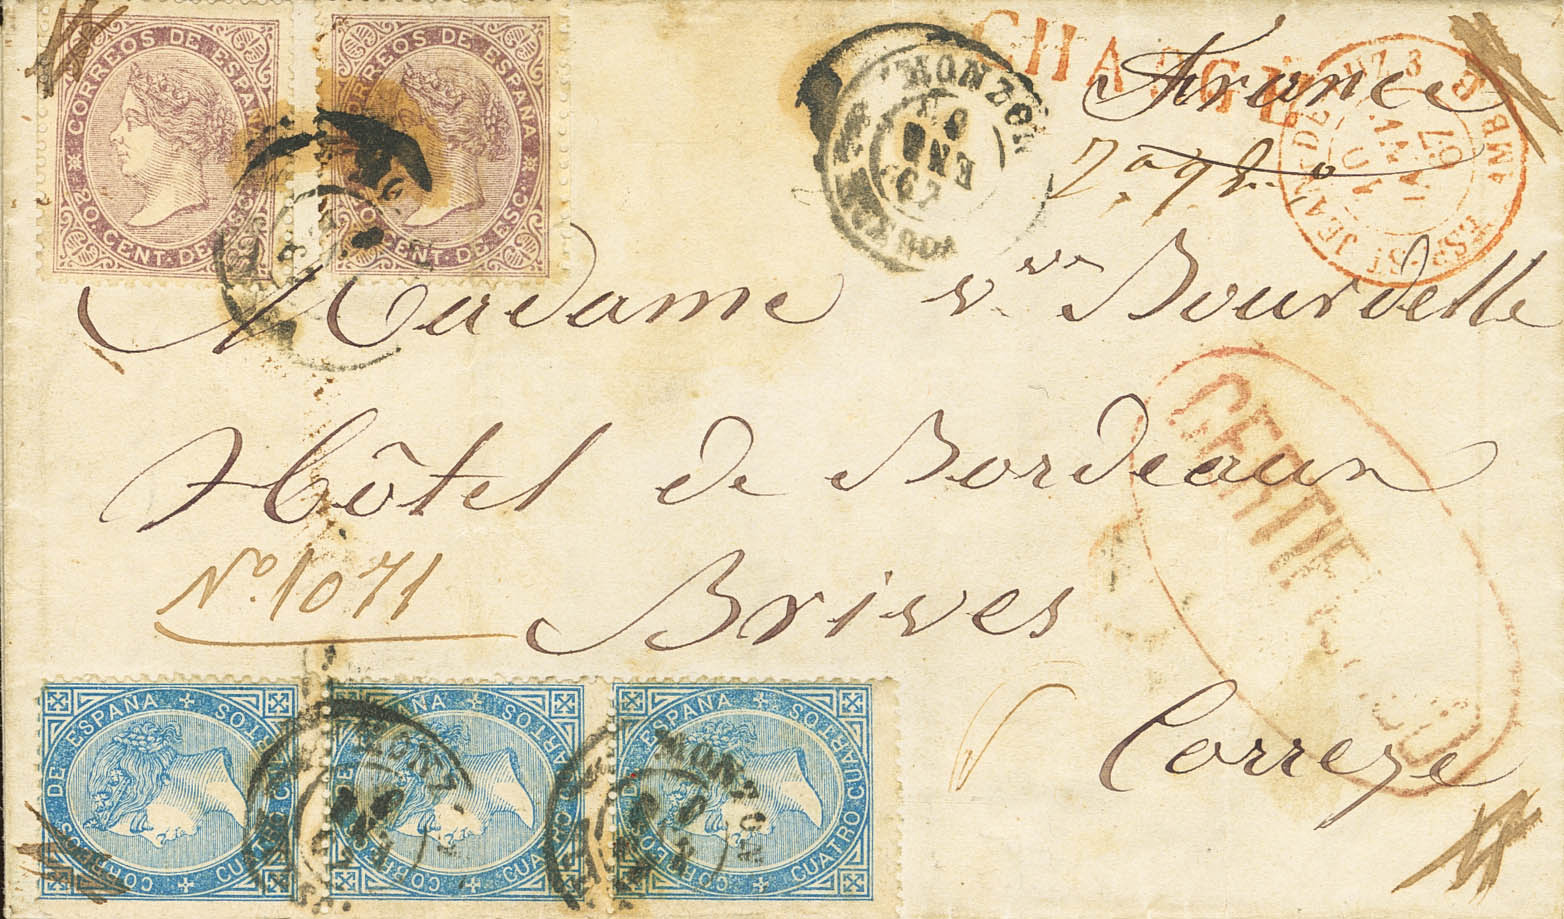 CORREOS DE ESPAÑA
20 CENT. DE ESC.
CORREOS DE ESPAÑA
CENT. DE ESC.
MONZON
ENE
67
CHARGE
France
AMB
ESP. ST JEAN-DE-LUZ 3
67
Madame vve Bourdelle
Hôtel de Bordeaux
Nº 1071
Brives
Correze
CERTIFICADO
CORREOS DE ESPAÑA
CUATRO CUARTOS
CORREOS DE ESPAÑA
CUATRO CUARTOS
CORREOS DE ESPAÑA
CUATRO CUARTOS
MONZON
MONZON